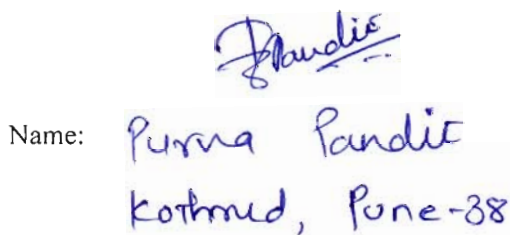 Pandit
Name: Purna Pandit
Kothrud, Pune-38